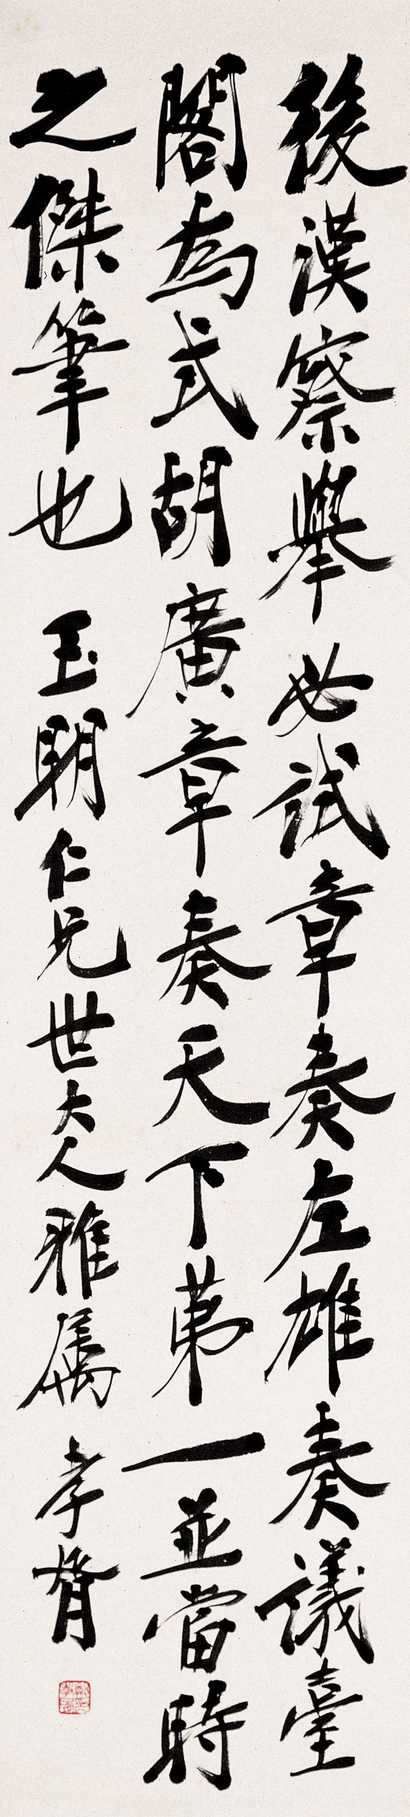 後漢察舉必試章奏左雄奏議臺
閣為式胡廣章奏天下第一並當時
之傑筆也 玉朗仁兄世大人雅屬 孝胥